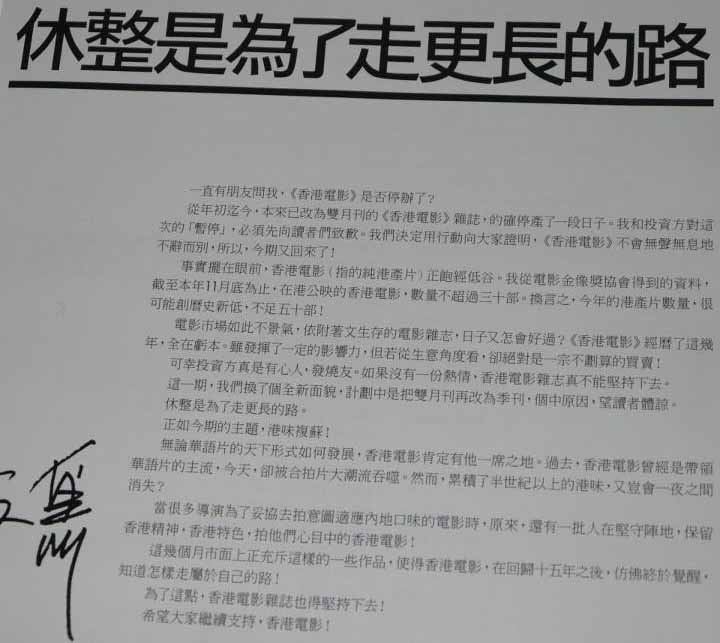 休整是為了走更長的路
一直有朋友問我，《香港電影》是否停辦了？
從年初迄今，本來已改為雙月刊的《香港電影》雜誌，的確停產了一段日子。我和投資方對這
次的「暫停」，必須先向讀者們致歉。我們決定用行動向大家證明，《香港電影》不會無聲無息地
不辭而別，所以，今期又回來了！
事實擺在眼前，香港電影（指的純港產片）正飽經低谷。我從電影金像獎協會得到的資料，
截至本年11月底為止，在港公映的香港電影，數量不超過三十部。換言之，今年的港產片數量，很
可能創曆史新低，不足五十部！
電影市場如此不景氣，依附著文生存的電影雜志，日子又怎會好過？《香港電影》經曆了這幾
年，全在虧本。雖發揮了一定的影響力，但若從生意角度看，卻絕對是一宗不劃算的買賣！
可幸投資方真是有心人，發燒友。如果沒有一份熱情，香港電影雜誌真不能堅持下去。
這一期，我們換了個全新面貌，計劃中是把雙月刊再改為季刊，個中原因，望讀者體諒。
休整是為了走更長的路。
正如今期的主題，港味複蘇！
無論華語片的天下形式如何發展，香港電影肯定有他一席之地。過去，香港電影曾經是帶領
華語片的主流，今天，卻被合拍片大潮流吞噬。然而，累積了半世紀以上的港味，又豈會一夜之間
消失？
當很多導演為了妥協去拍意圖適應內地口味的電影時，原來，還有一批人在堅守陣地，保留
香港精神，香港特色，拍他們心目中的香港電影！
這幾個月市面上正充斥這樣的一些作品，使得香港電影，在回歸十五年之後，仿佛終於覺醒，
知道怎樣走屬於自己的路！
為了這點，香港電影雜誌也得堅持下去！
希望大家繼續支持，香港電影！